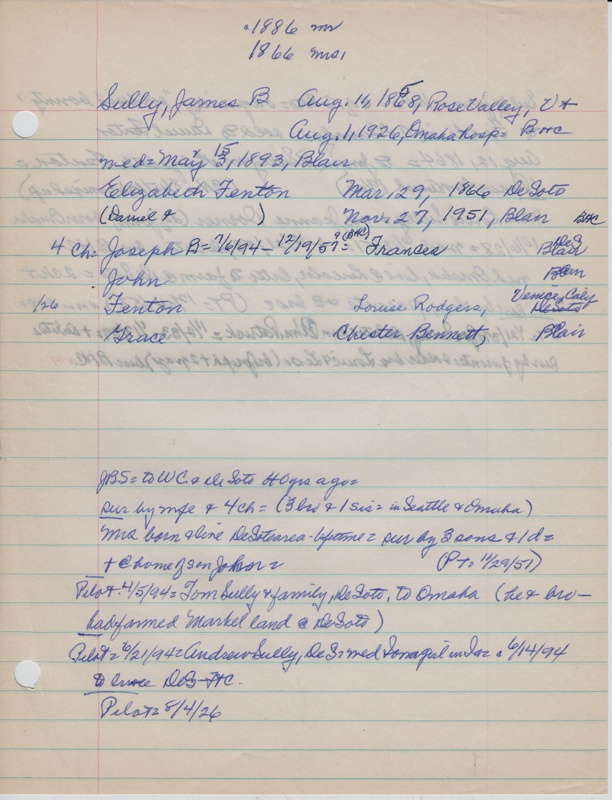 c1886 mr
1866 mrs.
Sully, James B Aug. 11, 1868, 5 Rose Valley, Vt
Aug. 1, 1926, Omaha hosp = BHC
med = May 3, 15 1893, Blair
Elizabeth Fenton Mar. 29, 1866 DeSoto
(Daniel & ) Nov. 27, 1951, Blair BHC
4 ch = Joseph B = 7/6/94 - 12/19/57 = ? (BHC) Frances Blair DeS
John Blair
1/26 Fenton Louise Rodgers, Venice, Calif DeSoto
Grace Chester Bennett, Blair
JBS = to WC & DeSoto 40 yrs ago =
sur by wife & 4 ch = (3 bro & 1 sis = in Seattle & Omaha)
Mrs born & live DeSoto area - lifetime = sur by 3 sons & 1 d =
+ @ home of son John = (PT = 11/29/51)
Pilot = 4/5/94 = Tom Sully & family, DeSoto, to Omaha (he & bro-
had farmed Markel land @ DeSoto)
Pilot = 6/21/94 = Andrew Sully, DeS = med to girl in Ia = c 6/14/94
to live DeS - WC.
Pilot = 8/4/26